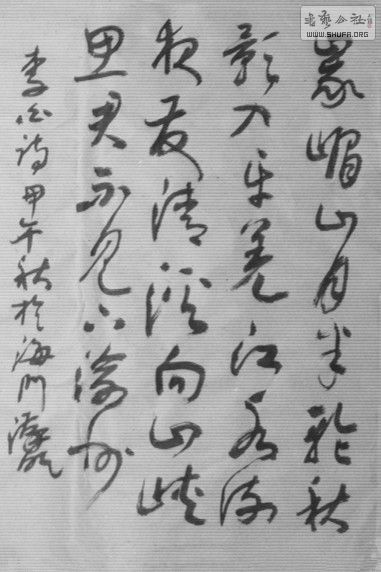 峩嵋山月半轮秋
影入平羌江水流
夜发清溪向三峡
思君不见下渝州
李白诗甲午秋於海门
书艺公社
WWW.SHUFA.ORG